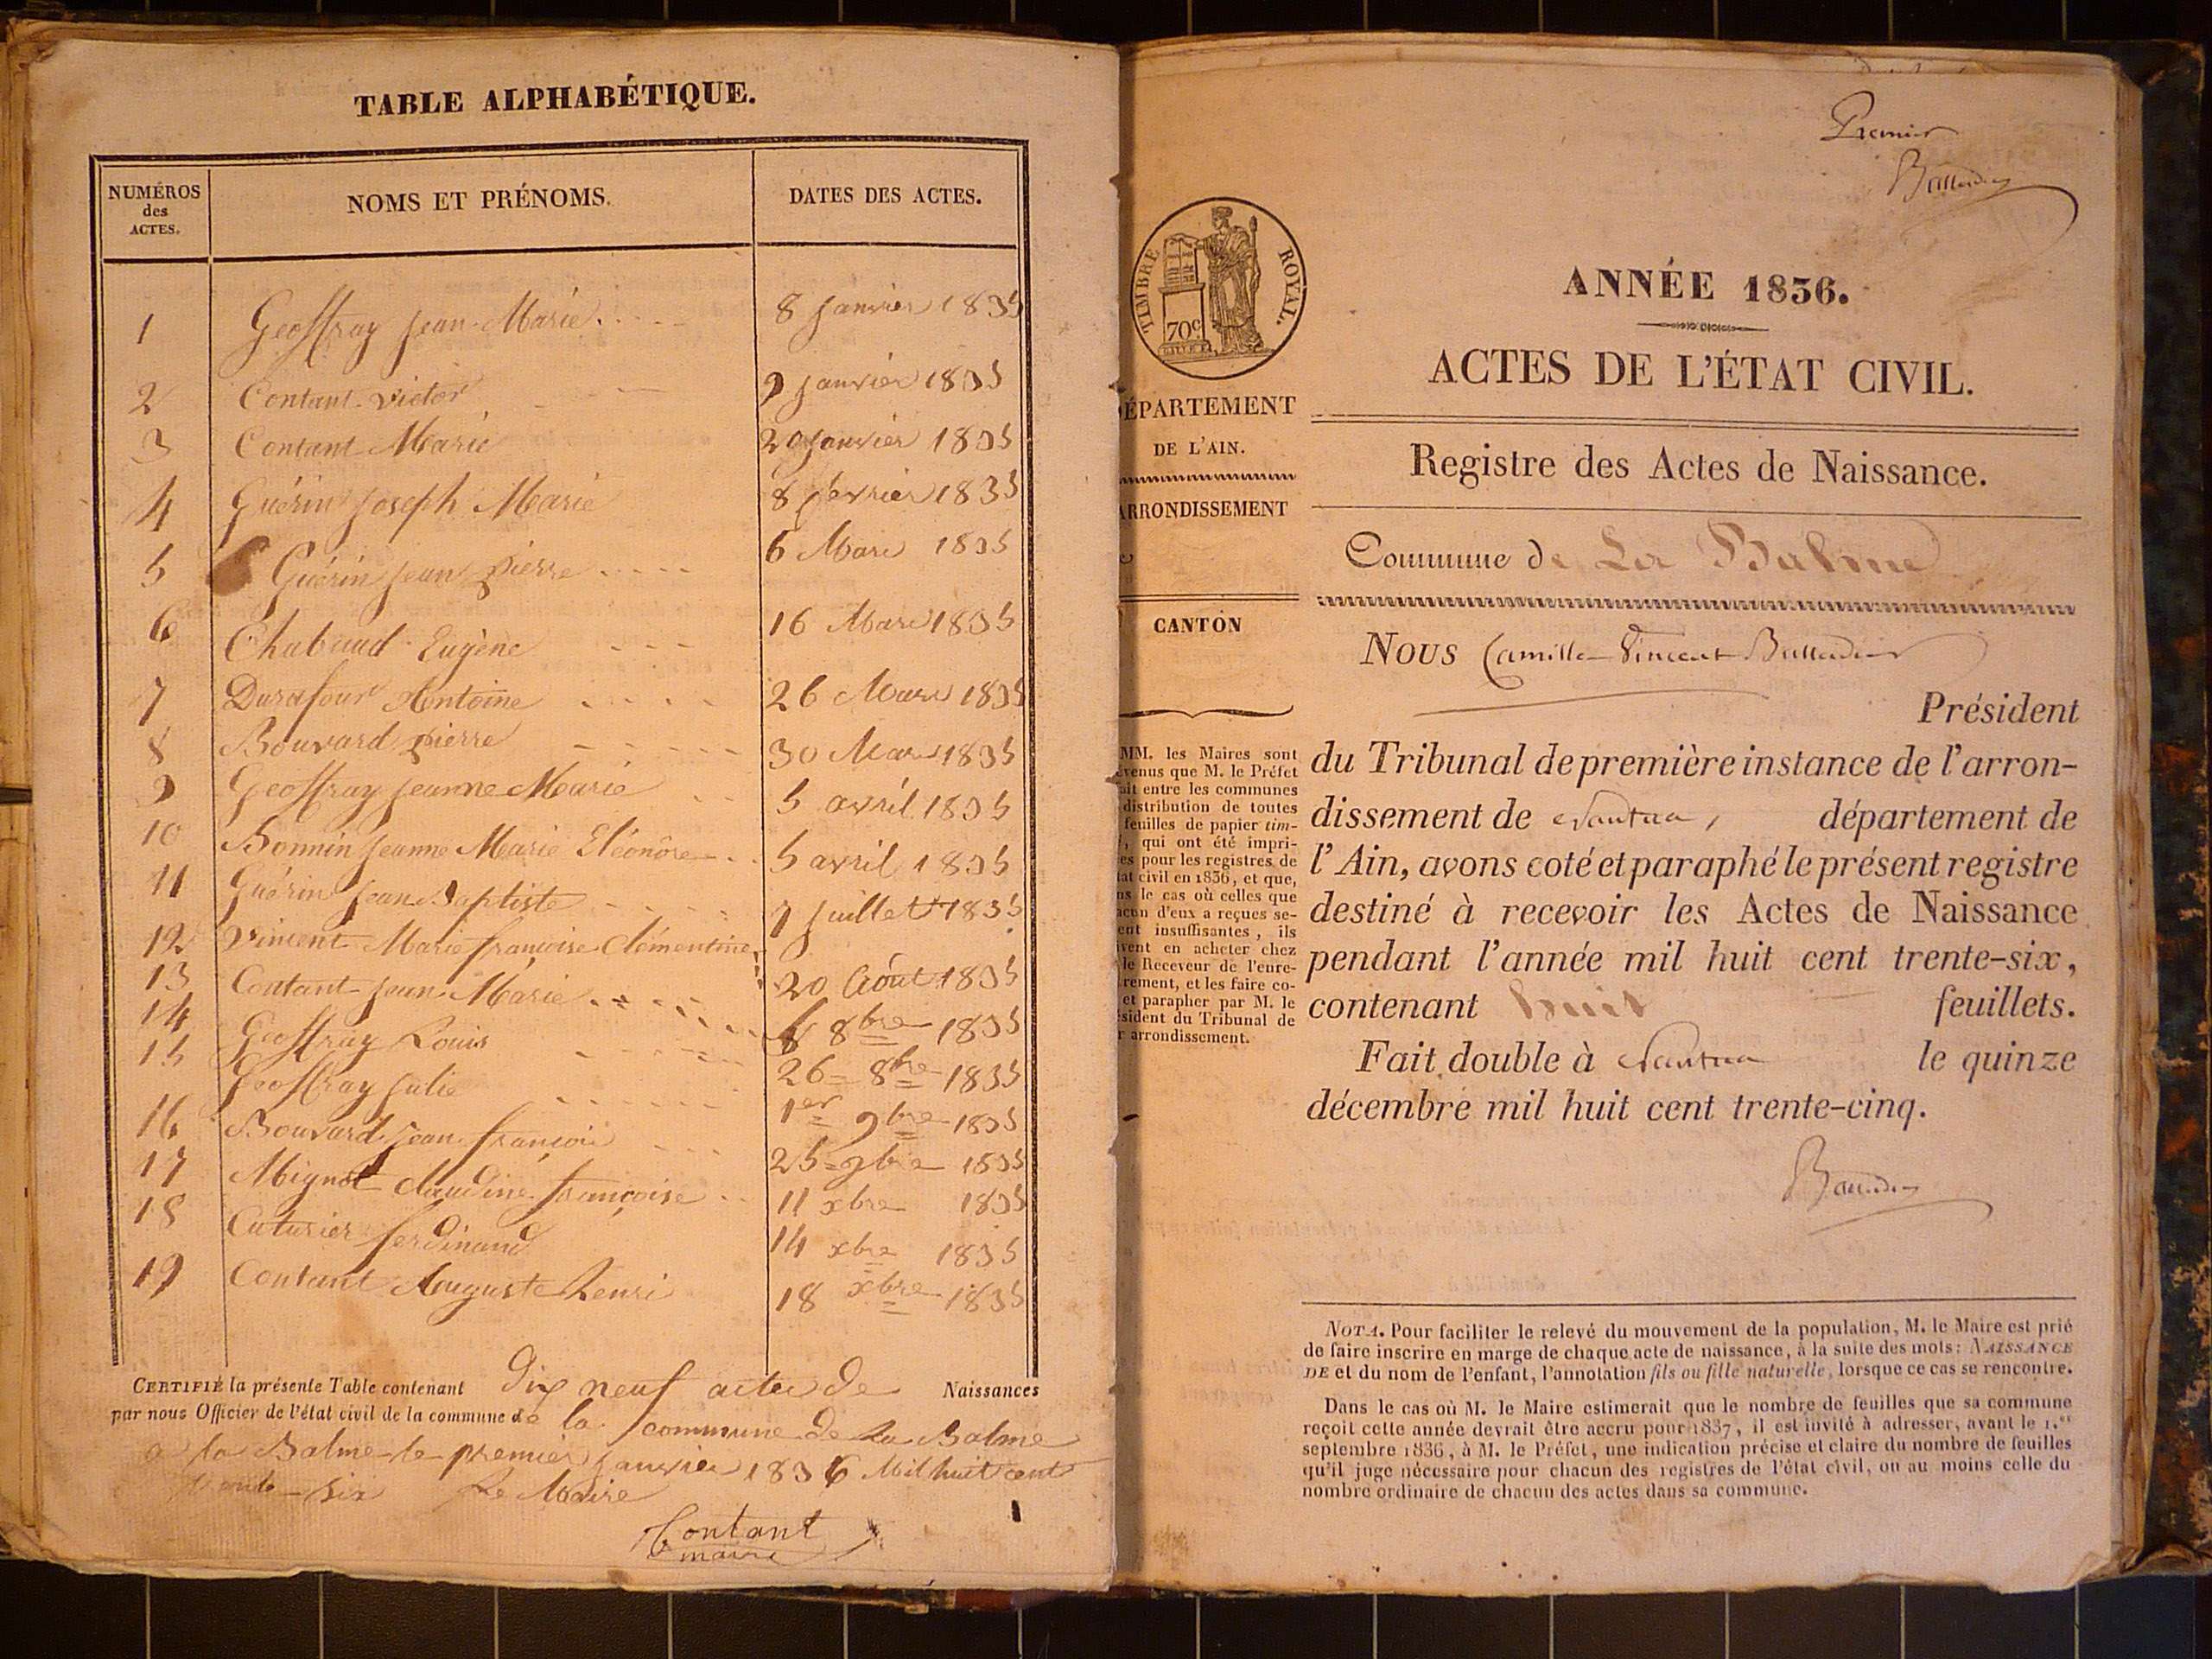 TABLE ALPHABÉTIQUE.
NUMÉROS des ACTES. NOMS ET PRÉNOMS. DATES DES ACTES.
1 Geoffray Jean Marie 8 Janvier 1835
2 Contant Victor 9 Janvier 1835
3 Contant Marie 20 Janvier 1835
4 Guérin Joseph Marie 8 février 1835
5 Guérin Jean Pierre 6 Mars 1835
6 Chabaud Eugène 16 Mars 1835
7 Durafour Antoine 26 Mars 1835
8 Bouvard Pierre 30 Mars 1835
9 Geoffray Jeanne Marie 5 avril 1835
10 Bonnin Jeanne Marie Eléonôre 5 avril 1835
11 Guérin Jean Baptiste 7 Juillet 1835
12 Vincent Marie françoise Clémentine
13 Contant Jean Marie 20 Août 1835
14 Geoffray Louis 8bre 1835
15 Geoffray Julie 26 8bre 1835
16 Bouvard Jean françois 1er 9bre 1835
17 Mignot Claudine françoise 25 9bre 1835
11 xbre 1835
18 Cuturier ferdinand 14 xbre 1835
19 Contant Auguste henri 18 xbre 1835
CERTIFIÉ la présente Table contenant dix neuf actes de Naissances
par nous Officier de l'état civil de la commune de la commune de La Balme
a la Balme le premier Janvier 1836 Mil huit cent
trente-six Le Maire
Contant
maire
Premier
TIMBRE ROYAL.
70c
ANNÉE 1836.
ACTES DE L'ÉTAT CIVIL.
Registre des Actes de Naissance.
Commune de La Balme
ÉPARTEMENT
DE L'AIN.
ARRONDISSEMENT
CANTON
MM. les Maires sont
venus que M. le Préfet
ait entre les communes
distribution de toutes
feuilles de papier tim-
, qui ont été impri-
es pour les registres de
at civil en 1836, et que,
ns le cas où celles que
acun d'eux a reçues se-
ent insuffisantes, ils
ivent en acheter chez
le Receveur de l'enre-
rement, et les faire co-
et parapher par M. le
sident du Tribunal de
r arrondissement.
Nous Camille Vincent
Président
du Tribunal de première instance de l'arron-
dissement de Nantua, département de
l'Ain, avons coté et paraphé le présent registre
destiné à recevoir les Actes de Naissance
pendant l'année mil huit cent trente-six,
contenant huit feuillets.
Fait double à Nantua le quinze
décembre mil huit cent trente-cinq.
NOTA. Pour faciliter le relevé du mouvement de la population, M. le Maire est prié
de faire inscrire en marge de chaque acte de naissance, à la suite des mots: NAISSANCE
DE et du nom de l'enfant, l'annotation fils ou fille naturelle, lorsque ce cas se rencontre.
Dans le cas où M. le Maire estimerait que le nombre de feuilles que sa commune
reçoit cette année devrait être accru pour 1837, il est invité à adresser, avant le 1.er
septembre 1836, à M. le Préfet, une indication précise et claire du nombre de feuilles
qu'il juge nécessaire pour chacun des registres de l'état civil, ou au moins celle du
nombre ordinaire de chacun des actes dans sa commune.